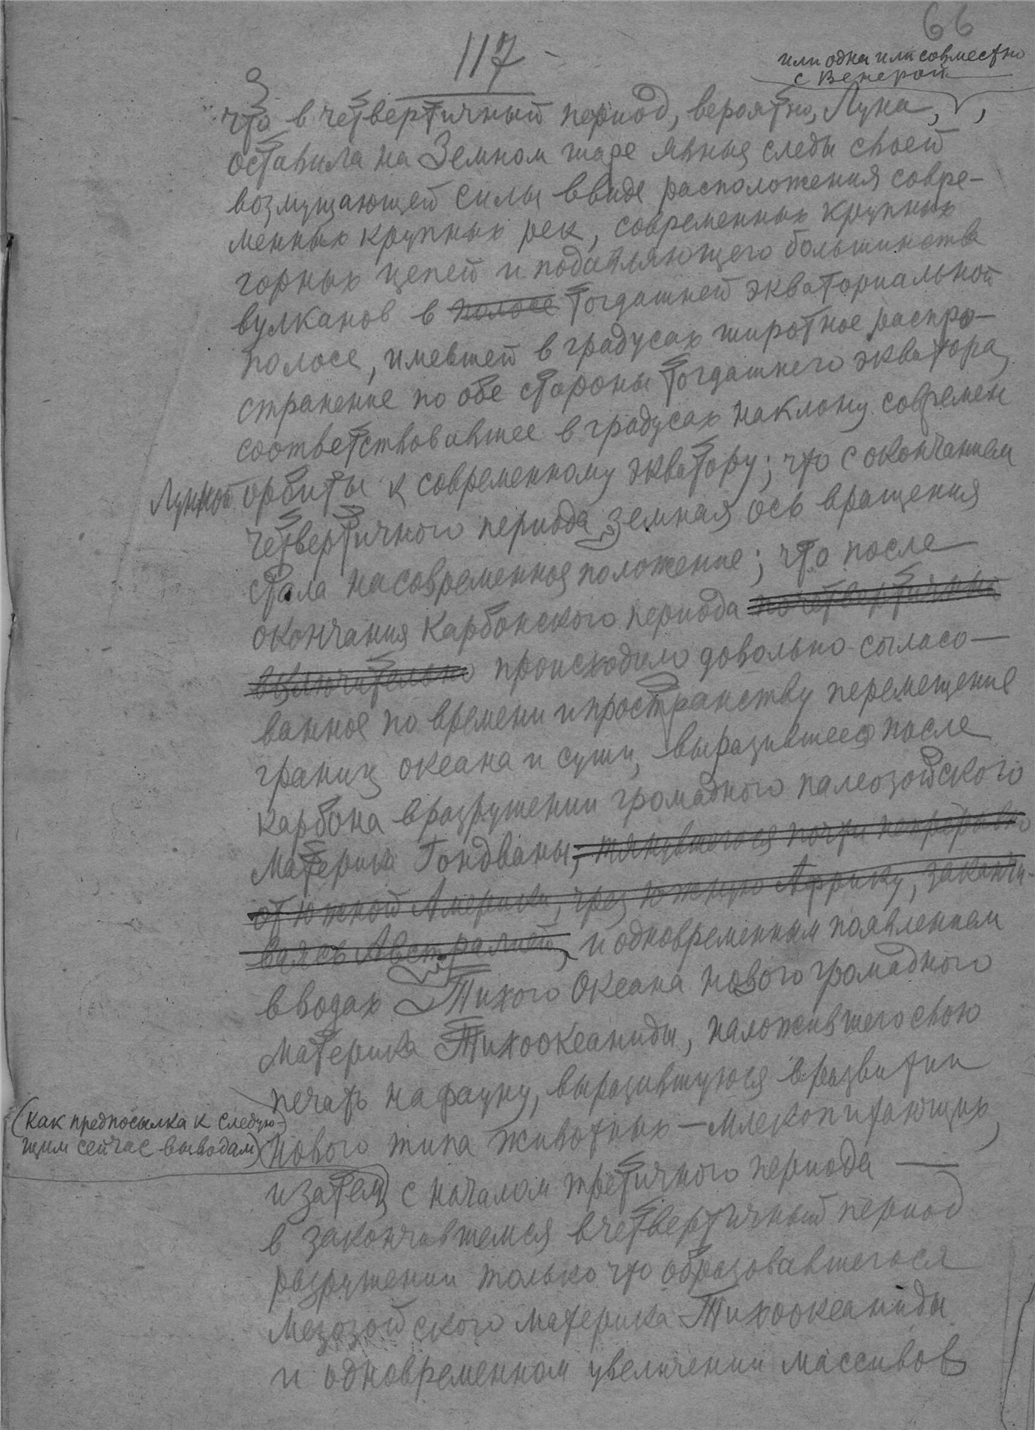 66
117
или одна или совместно
с Венерой
что в четвертичный период, вероятно, Луна,
оставила на Земном шаре явные следы своей
возмущающей силы ввиде расположения совре-
менных крупных рек, современных крупных
горных цепей и подавляющего большинства
вулканов в полосе тогдашней экваториальной
полосе, имевшей в градусах широтное распро-
странение по обе стороны тогдашнего экватора,
соответствовавшее в градусах наклону современ
Лунной орбиты к современному экватору; что с окончанием
четвертичного периода земная ось вращения
стала на современное положение; что после
окончания Карбонского периода по четвертичный
включительно происходило довольно согласо-
ванное по времени и пространству перемещение
границ океана и суши, выразившееся после
карбона в разрушении громадного палеозойского
материка Гондваны, тянувшегося почти непрерывно
от южной Америки, чрез южную Африку, заканчи-
ваясь Австралией, и одновременным появлением
в водах Тихого Океана нового громадного
материка Тихоокеаниды, наложившего свою
печать на фауну, выразившуюся в развитии
(как предпосылка к следую-
щим сейчас выводам)
нового типа животных — млекопитающих,
и затем с началом третичного периода —
в закончившемся в четвертичный период
разрушении только что образовавшегося
мезозойского материка Тихоокеаниды
и одновременном увеличении массивов